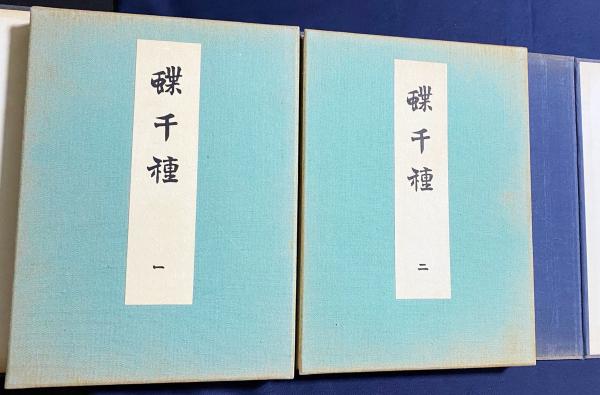 蝶千種
一
蝶千種
二